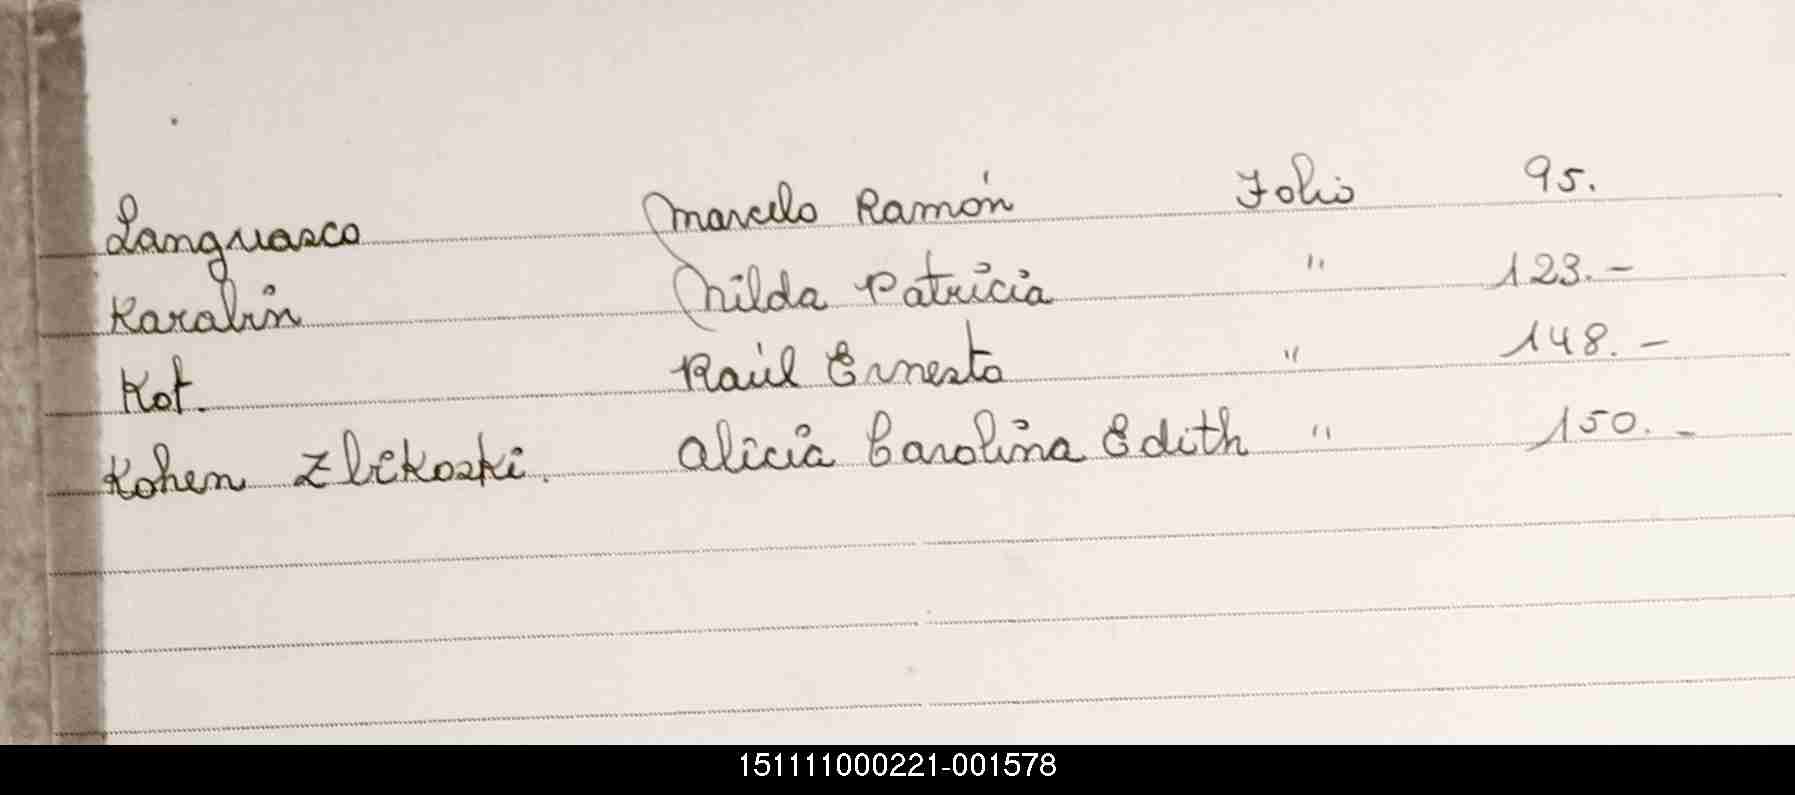 Languasco Marcelo Ramón Folio 95.
Karabin Nilda Patricia " 123.-
Kot. Raúl Ernesto " 148.-
Kohen Zlikoski. Alicia Carolina Edith " 150.-
151111000221-001578